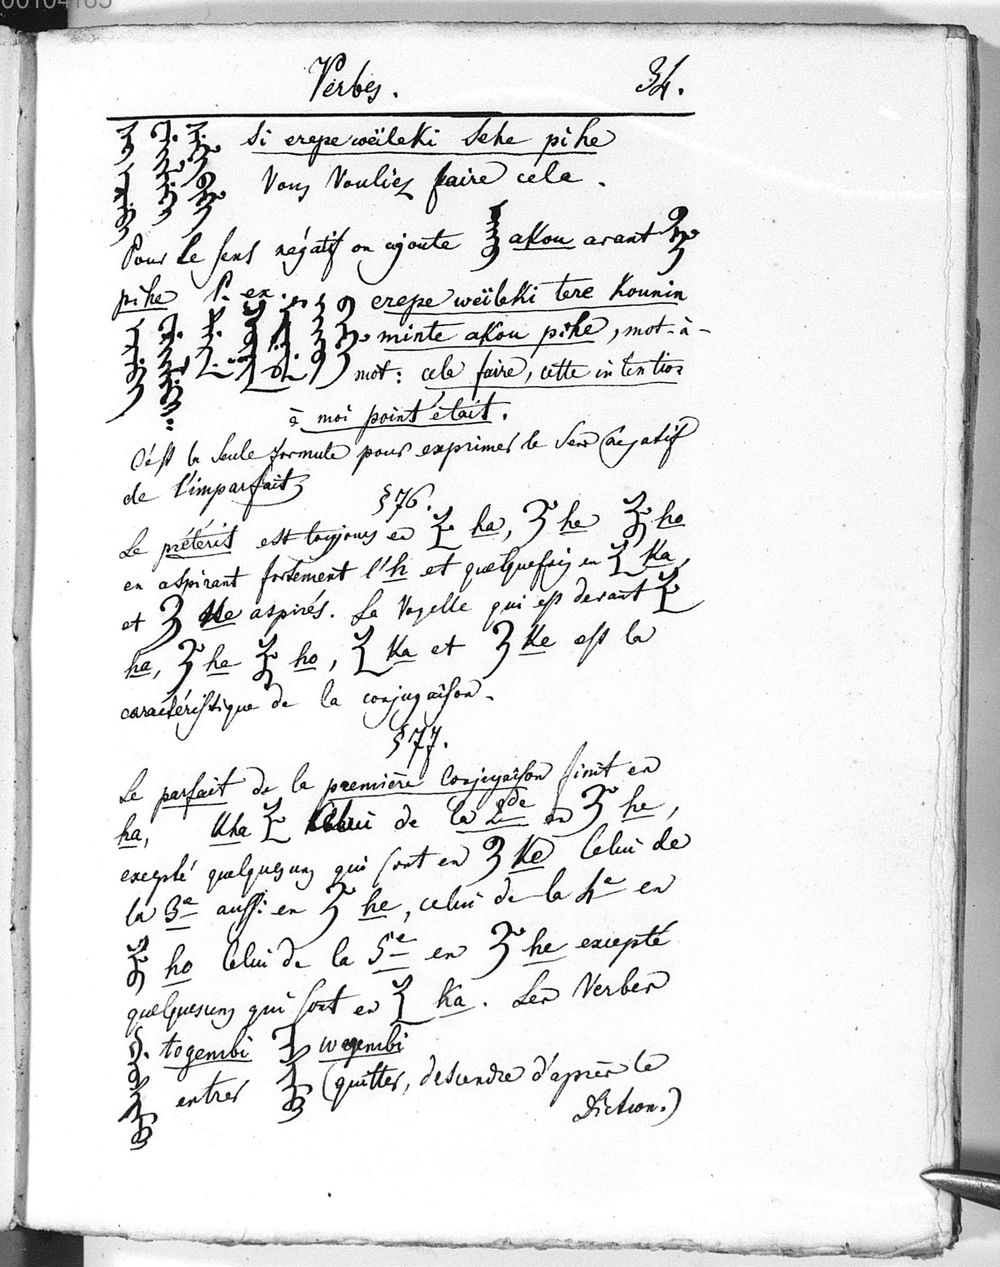 00104165
Verbes. 34.
Si erepe weïleki Sehe pihe
Vous Vouliez faire cela.
Pour le sens négatif on ajoute akou avant
pihe P. ex. erepe weïleki tere kounin
minte akou pihe, mot-à-
mot: cela faire, cette intention
à moi point était.
C'est la Seule formule pour exprimer le Sens négatif
de l'imparfait
§ 76.
Le prétérit est toujours en ha, he ho
en aspirant fortement l'h et quelquefois en Ka,
et Ke aspirés. La Voyelle qui est devant
ha, he ho, Ka et Ke est la
caractéristique de la conjugaison.
§ 77.
Le parfait de la première Conjugaison finit en
ha, Kha Celui de la 2de en he,
excepté quelquesuns qui sont en Ke Celui de
la 3e aussi en he, celui de la 4e en
ho Celui de la 5e en he excepté
quelquesuns qui sont en Ka. Les Verbes
togembi wegembi
entrer (quitter, descendre d'après le
Diction.)